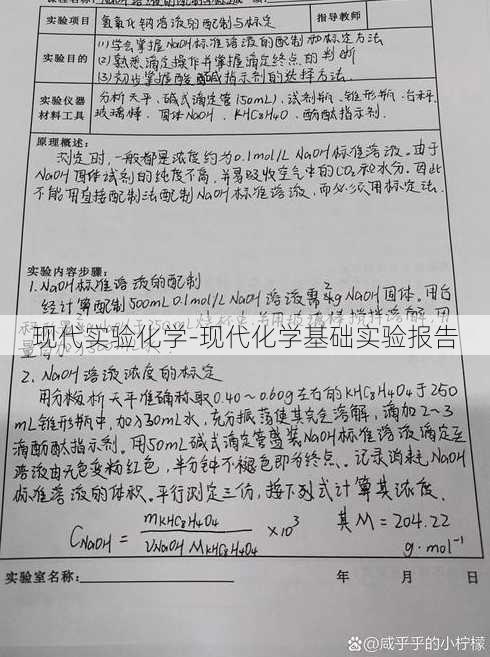 实验项目 氢氧化钠溶液的配制与标定 指导教师
实验目的
(1)学会掌握NaOH标准溶液的配制和标定方法
(2)熟悉滴定操作并掌握滴定终点的判断
(3)初步掌握酸碱指示剂的选择方法.
实验仪器
材料工具
分析天平、碱式滴定管(50mL)、试剂瓶、锥形瓶、台秤、
玻璃棒、固体NaOH、KHC8H4O、酚酞指示剂.
原理概述:
测定时,一般都是浓度约为0.1mol/L NaOH标准溶液.由于
NaOH固体试剂的纯度不高,并易吸收空气中的CO2和水分.因此
不能用直接配制法配制NaOH标准溶液,而必须用标定法.
实验内容步骤:
1.NaOH标准溶液的配制
经计算配制500mL 0.1mol/L NaOH溶液需2kg NaOH固体.用台
现代实验化学-现代化学基础实验报告
2.NaOH溶液浓度的标定
用分析天平准确称取0.40~0.60g左右的KHC8H4O4于250
mL锥形瓶中,加入30mL水,充分振荡使其完全溶解,滴加2~3
滴酚酞指示剂.用50mL碱式滴定管盛装NaOH标准溶液滴定至
溶液由无色变粉红色,半分钟不褪色即为终点.记录消耗NaOH
标准溶液的体积.平行测定三份,按下列式计算其浓度.
CNaOH = mKHC8H4O4 / VNaOH MKHC8H4O4 ×10³ 其M=204.22
g·mol⁻¹
实验室名称: 年 月 日
@咸乎乎的小柠檬